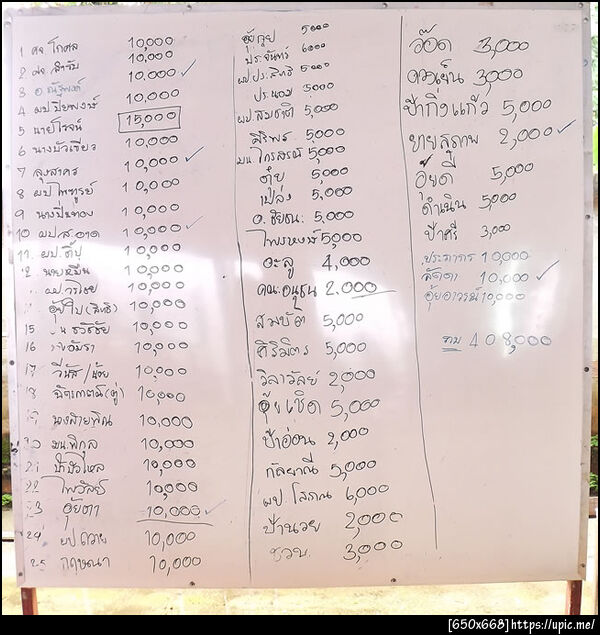 1 ศจ โกศล 10,000
2 ศจ สำรับ 10,000
3 อ ณัฐพงค์ 10,000 ✓
4 ผป ปิยพงษ์ 10,000
5 นายโรจน์ 15,000
6 นางบัวเขียว 10,000
7 ลุงสาคร 10,000 ✓
8 ผป ไพฑูรย์ 10,000
9 10,000
10 ผป สอาด 10,000 ✓
11 ผป. ตี๋ปุ 10,000
12 10,000
ผป. วรไชย 10,000
อุ้ยใบ (สิทธิ) 10,000
15 ธวัชชัย 10,000
16 10,000
17 วีนัส/น้อย 10,000
18 10,000
19 นางสายพิณ 10,000
20 มน.พิกุล 10,000
21 10,000
22 ไพวัลย์ 10,000
23 อุ้ยตา 10,000 ✓
24 ผป ถวาย 10,000
25 กฤษณา 10,000
5000
ประจันทร์ 6000
ผป ประสิทธิ์ 5000
ประนอม 5000
ผป. สมชาติ 5,000
ศิริพร 5,000
มน. ไกรสรณ์ 5,000
ต๋ำย 5,000
เปล่ง 5,000
5,000
ไพรพงษ์ 5,000
อะลู 4,000
คณะอนุชน 2,000
สมบัติ 5,000
ศิริมิตร 5,000
วิลาวัลย์ 2,000
อุ้ยเชิด 5,000
ป้าอ่อน 2,000
กัลยาณี 5,000
ผป โสภณ 6,000
ป้านวย 2,000
ชวน. 3,000
อ๊อด 3,000
ดวงเย็น 3,000
ป้ากิ่งแก้ว 5,000
ยายสุภาพ 2,000 ✓
อุ้ยดี 5,000
ดำเนิน 5,000
ป้าศรี 3,000
ประภากร 10,000
ลัดดา 10,000 ✓
อุ้ยอาวรณ์ 10,000
รวม 408,000
[650x668]https://upic.me/